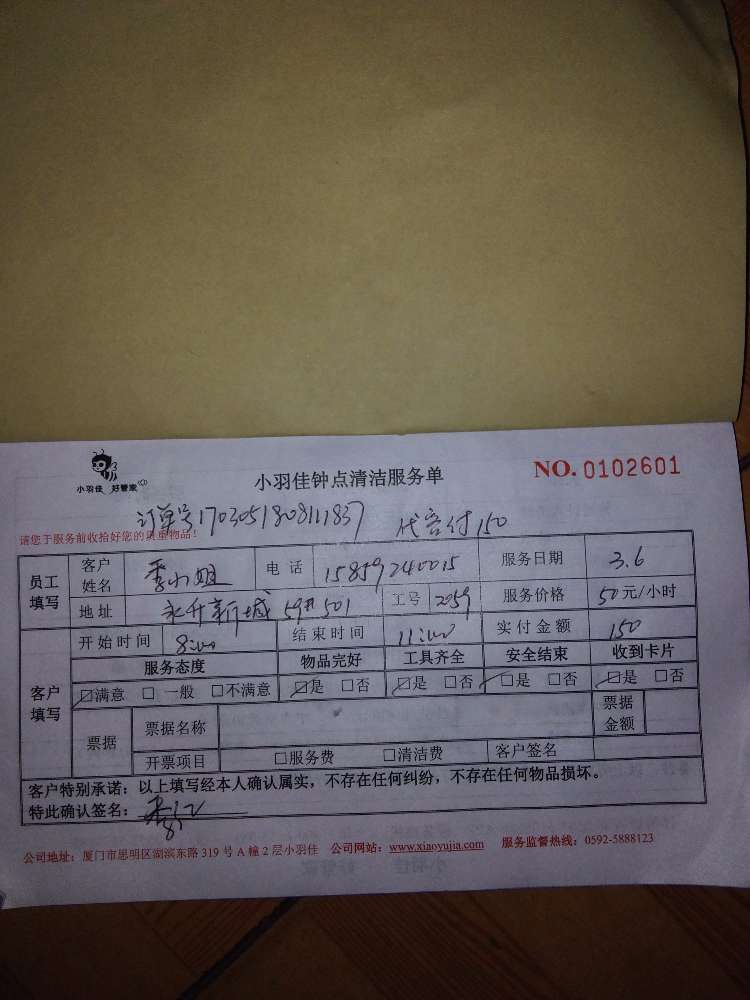 小羽佳 好管家
小羽佳钟点清洁服务单
NO. 0102601
订单号1703051808111837 代客付150
请您于服务前收拾好您的贵重物品!
员工填写 客户姓名 李小姐 电话 15859240015 服务日期 3.6
地址 永升新城59# 501 工号 2059 服务价格 50元/小时
客户填写 开始时间 8:00 结束时间 11:00 实付金额 150
服务态度 物品完好 工具齐全 安全结束 收到卡片
☑满意 □一般 □不满意 ☑是 □否 ☑是 □否 ☑是 □否 ☑是 □否
票据 票据名称 票据金额
开票项目 □服务费 □清洁费 客户签名
客户特别承诺:以上填写经本人确认属实,不存在任何纠纷,不存在任何物品损坏。
特此确认签名:
公司地址:厦门市思明区湖滨东路 319 号 A 幢 2 层小羽佳 公司网站:www.xiaoyujia.com 服务监督热线:0592-5888123